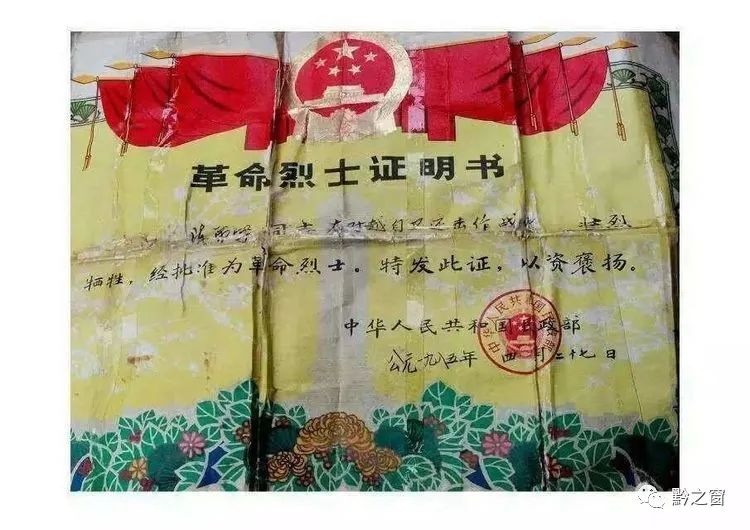 革命烈士证明书
同志 在对越自卫还击作战中 壮烈
牺牲，经批准为革命烈士。特发此证，以资褒扬。
中华人民共和国民政部
公元一九八五年 四月二十七日
黔之窗